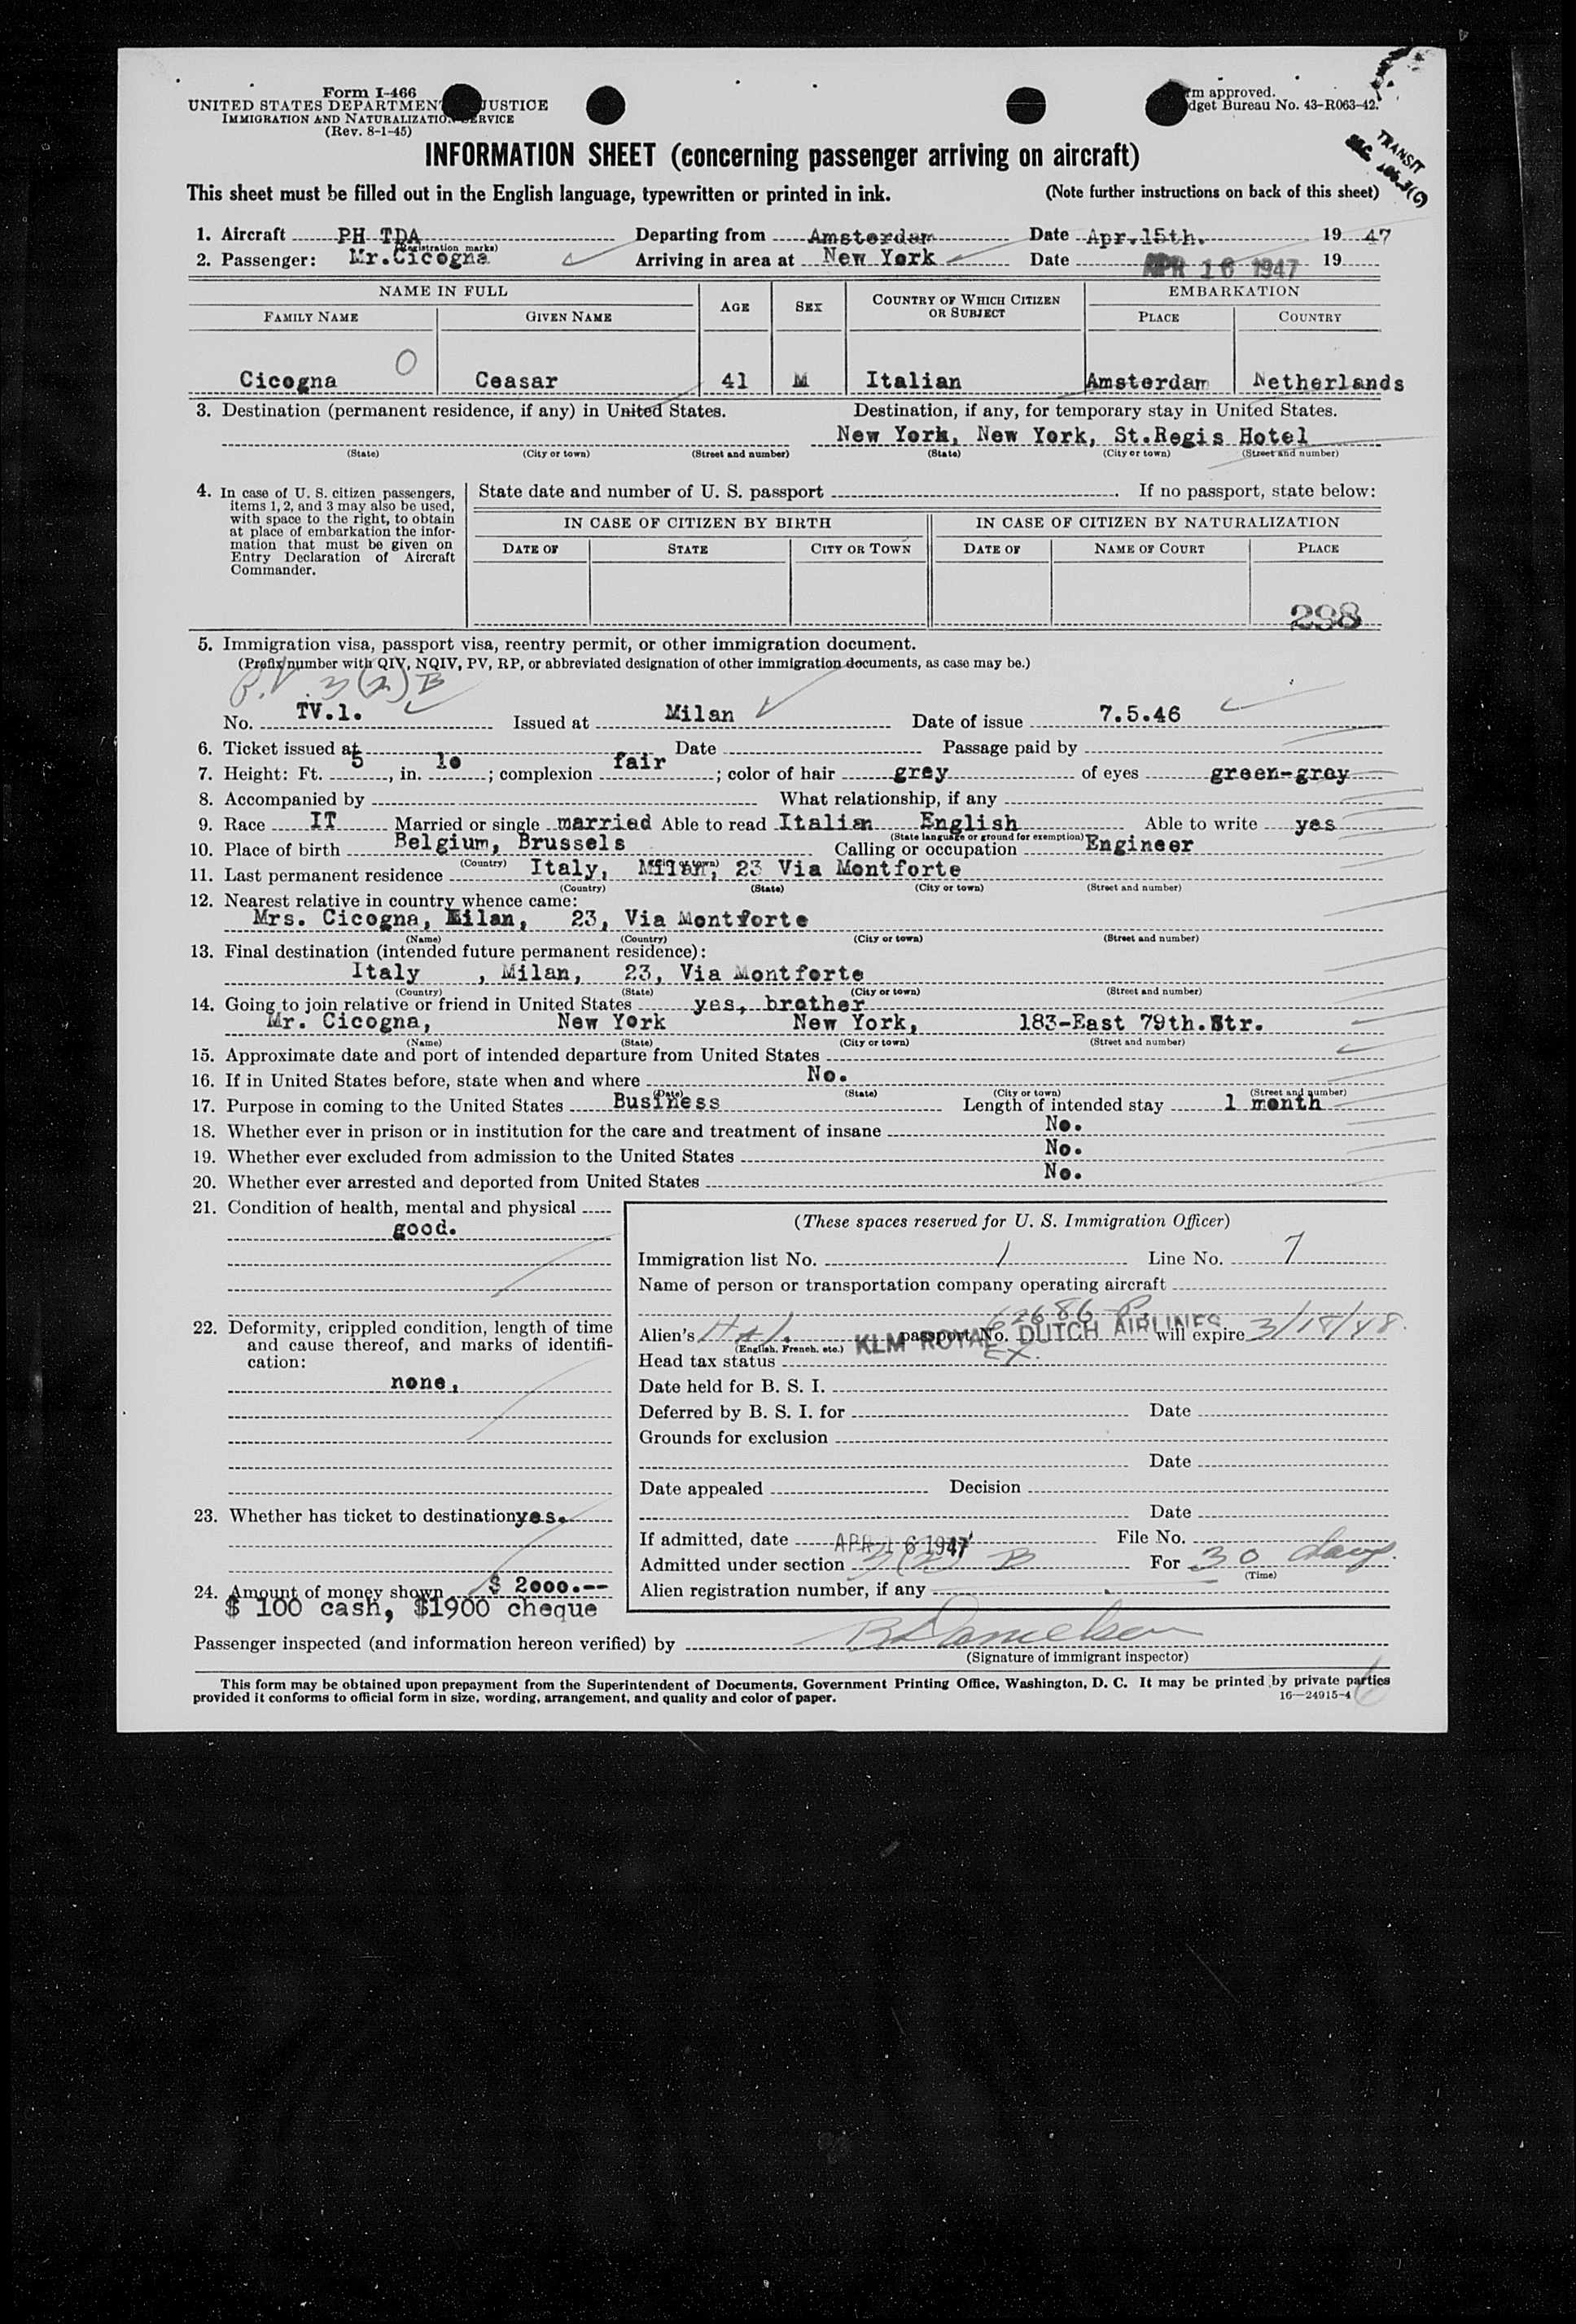 Form I-466
UNITED STATES DEPARTMENT JUSTICE
IMMIGRATION AND NATURALIZATION SERVICE
(Rev. 8-1-45)
rm approved.
dget Bureau No. 43-R063-42.
TRANSIT
INFORMATION SHEET (concerning passenger arriving on aircraft)
This sheet must be filled out in the English language, typewritten or printed in ink. (Note further instructions on back of this sheet)
1. Aircraft PH TDA Departing from Amsterdam Date Apr.15th. 19 47
(Registration marks)
2. Passenger: Mr.Cicogna Arriving in area at New York Date APR 16 1947 19
NAME IN FULL AGE SEX COUNTRY OF WHICH CITIZEN OR SUBJECT EMBARKATION
FAMILY NAME GIVEN NAME PLACE COUNTRY
Cicogna O Ceasar 41 M Italian Amsterdam Netherlands
3. Destination (permanent residence, if any) in United States. Destination, if any, for temporary stay in United States.
New York, New York, St.Regis Hotel
(State) (City or town) (Street and number) (State) (City or town) (Street and number)
4. In case of U. S. citizen passengers, items 1, 2, and 3 may also be used, with space to the right, to obtain at place of embarkation the information that must be given on Entry Declaration of Aircraft Commander.
State date and number of U. S. passport . If no passport, state below:
IN CASE OF CITIZEN BY BIRTH IN CASE OF CITIZEN BY NATURALIZATION
DATE OF STATE CITY OR TOWN DATE OF NAME OF COURT PLACE
298
5. Immigration visa, passport visa, reentry permit, or other immigration document.
(Prefix number with QIV, NQIV, PV, RP, or abbreviated designation of other immigration documents, as case may be.)
P.V. 3(2)B
No. TV.1. Issued at Milan Date of issue 7.5.46
6. Ticket issued at Date Passage paid by
7. Height: Ft. 5, in. 1o; complexion fair; color of hair grey of eyes green-gray
8. Accompanied by What relationship, if any
9. Race IT Married or single married Able to read Italian English Able to write yes
(State language or ground for exemption)
10. Place of birth Belgium, Brussels Calling or occupation Engineer
(Country) (City or town)
11. Last permanent residence Italy, Milan, 23 Via Montforte
(Country) (State) (City or town) (Street and number)
12. Nearest relative in country whence came:
Mrs. Cicogna, Milan, 23, Via Montforte
(Name) (Country) (City or town) (Street and number)
13. Final destination (intended future permanent residence):
Italy , Milan, 23, Via Montforte
(Country) (State) (City or town) (Street and number)
14. Going to join relative or friend in United States yes, brother
Mr. Cicogna, New York New York, 183-East 79th.Str.
(Name) (State) (City or town) (Street and number)
15. Approximate date and port of intended departure from United States
16. If in United States before, state when and where No.
(Date) (State) (City or town) (Street and number)
17. Purpose in coming to the United States Business Length of intended stay 1 month
18. Whether ever in prison or in institution for the care and treatment of insane No.
19. Whether ever excluded from admission to the United States No.
20. Whether ever arrested and deported from United States No.
21. Condition of health, mental and physical
good.
22. Deformity, crippled condition, length of time and cause thereof, and marks of identification:
none,
23. Whether has ticket to destination yes.
24. Amount of money shown $ 2000.--
$ 100 cash, $1900 cheque
(These spaces reserved for U. S. Immigration Officer)
Immigration list No. 1 Line No. 7
Name of person or transportation company operating aircraft
62686 P.
Alien's Ital. passport No. will expire 3/18/48.
(English, French, etc.) KLM ROYAL DUTCH AIRLINES
Head tax status EX.
Date held for B. S. I.
Deferred by B. S. I. for Date
Grounds for exclusion
Date
Date appealed Decision
Date
If admitted, date APR 16 1947 File No.
Admitted under section 3(2) B For 30 days.
(Time)
Alien registration number, if any
Passenger inspected (and information hereon verified) by
(Signature of immigrant inspector)
This form may be obtained upon prepayment from the Superintendent of Documents, Government Printing Office, Washington, D. C. It may be printed by private parties
provided it conforms to official form in size, wording, arrangement, and quality and color of paper.
16—24915-4